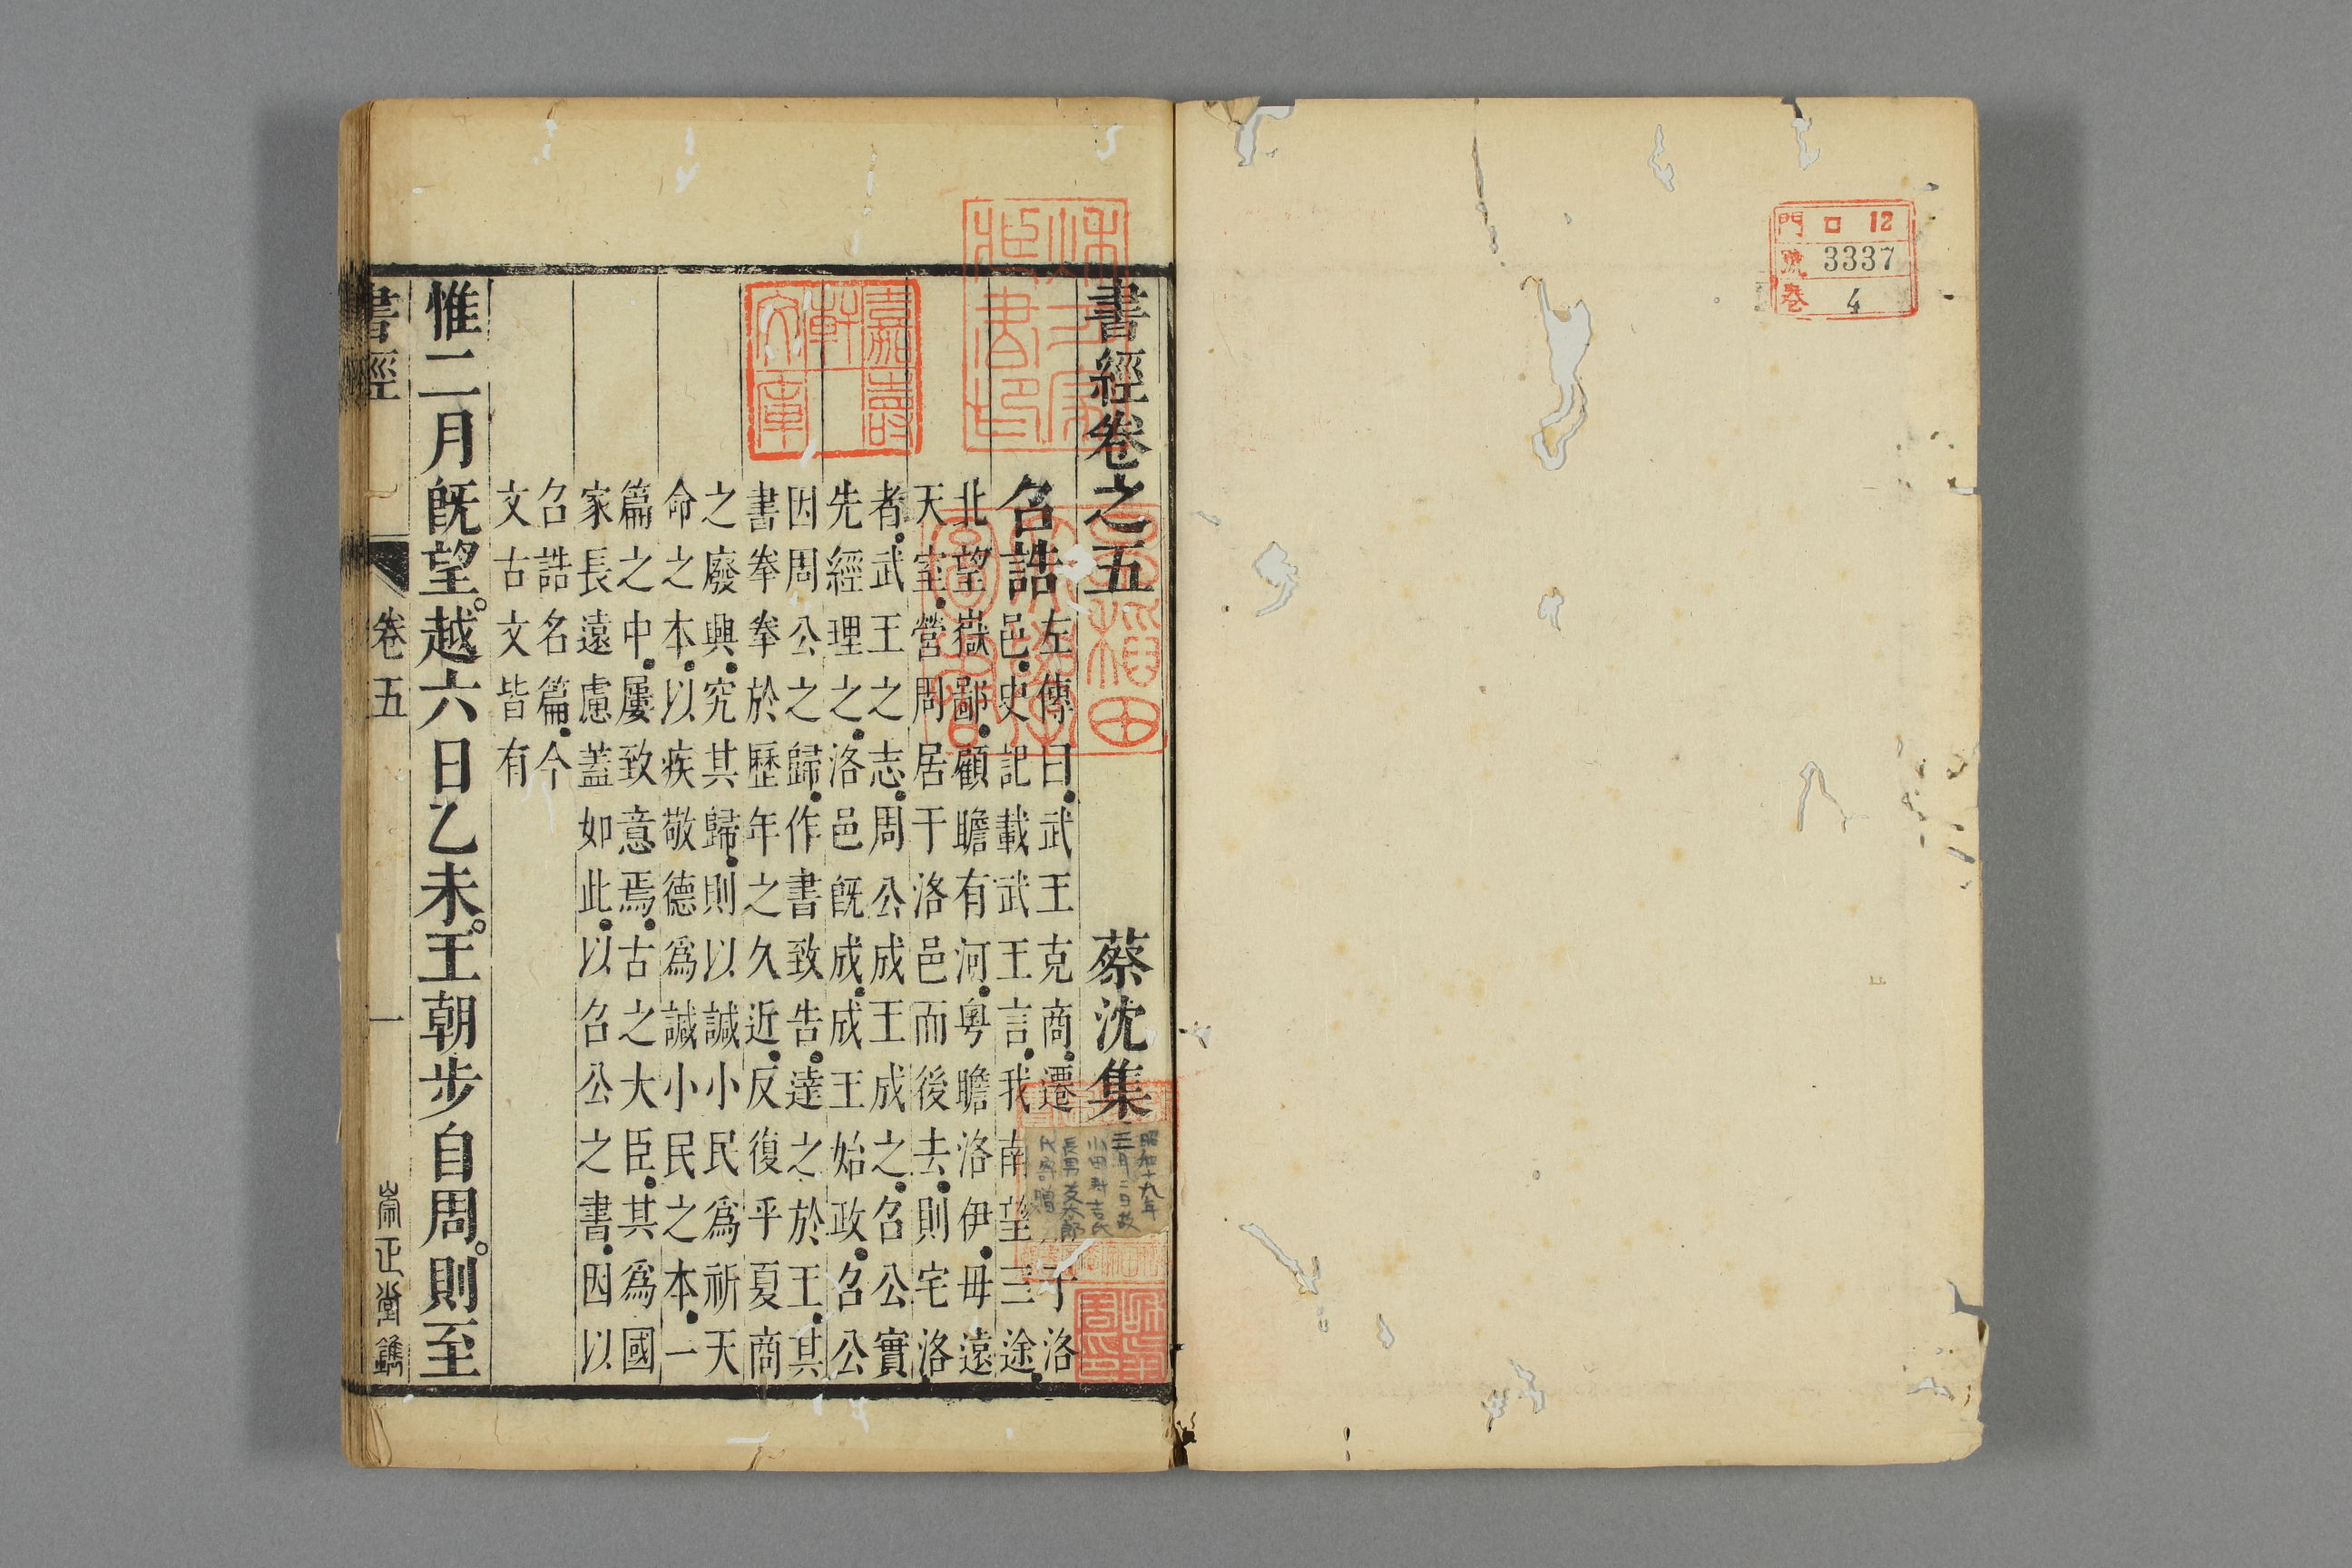 門 ロ 12
號 3337
卷 4
書經卷之五 蔡沈集
召誥
左傳曰武王克商遷于洛
邑史記載武王言我南望三途
北望嶽鄙顧瞻有河粵瞻洛伊毋遠
天室營周居于洛邑而後去則宅洛
者武王之志周公成王成之召公實
先經理之洛邑旣成成王始政召公
因周公之歸作書致告達之於王其
書拳拳於歷年之久近反復乎夏商
之廢興究其歸則以諴小民爲祈天
命之本以疾敬德爲諴小民之本一
篇之中屢致意焉古之大臣其爲國
家長遠慮蓋如此以召公之書因以
召誥名篇今
文古文皆有
惟二月旣望。越六日乙未。王朝步自周。則至
書經 卷五 一 崇正堂鐫
嘉壽軒文庫
早稻田大學圖書
昭和十九年
三月二日故